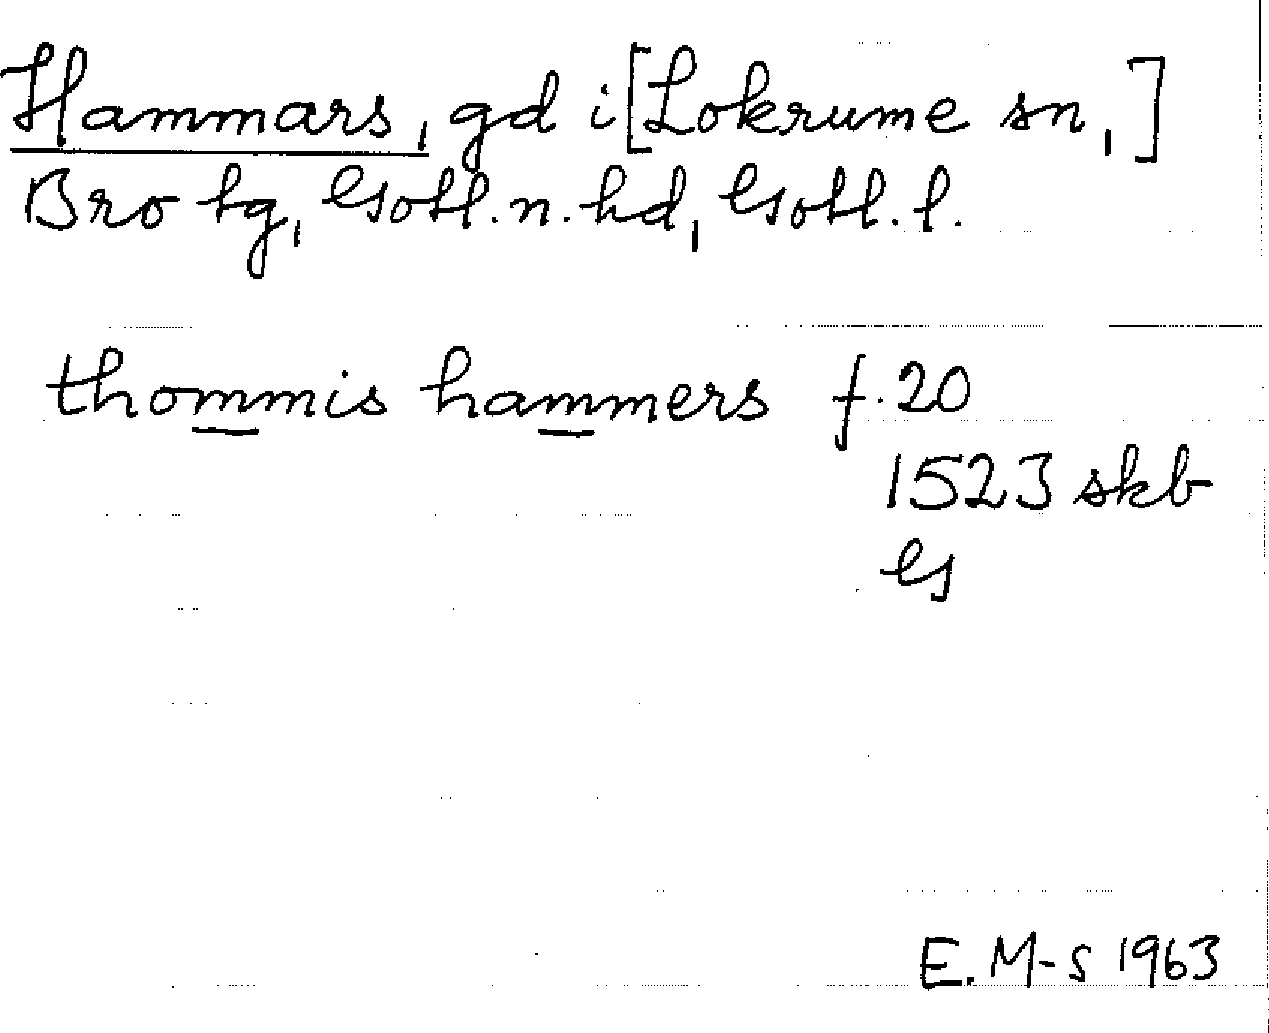 Hammars, gd i [Lokrume sn,]
Bro tg, Gotl. n. hd, Gotl. l.
thommis hammers f. 20
1523 skb
G
E. M-S 1963